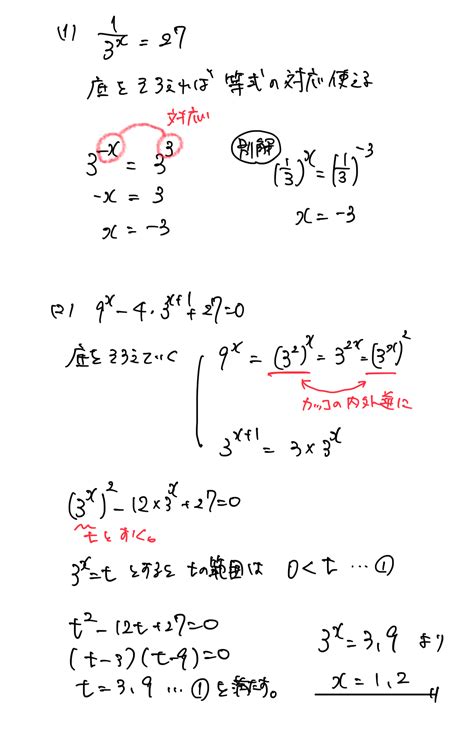 (1) 1/3^x = 27
底をそろえれば 等式の対応使える
対応い
3^{-x} = 3^3
-x = 3
x = -3
別解
(1/3)^x = (1/3)^{-3}
x = -3
(2) 9^x - 4・3^{x+1} + 27 = 0
底をそろえていく
9^x = (3^2)^x = 3^{2x} = (3^x)^2
カッコの内外逆に
3^{x+1} = 3 × 3^x
(3^x)^2 - 12 × 3^x + 27 = 0
tとすく。
3^x = t とすると tの範囲は 0 < t … ①
t^2 - 12t + 27 = 0
(t-3)(t-9) = 0
t = 3, 9 … ①を満たす。
3^x = 3, 9 より
x = 1, 2